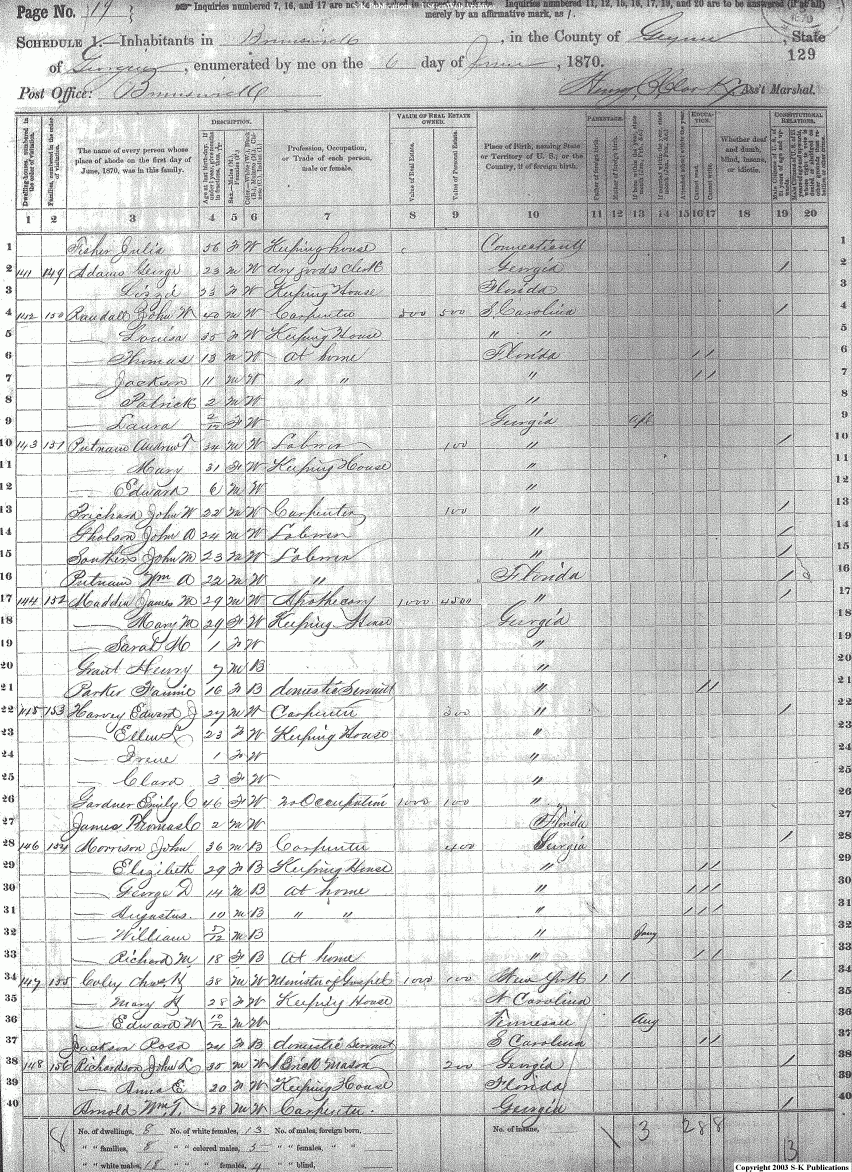 Page No. 19
Inquiries numbered 7, 16, and 17 are not to be asked in respect to infants. Inquiries 11, 12, 15, 16, 17, 19, and 20 are to be answered (if at all)
merely by an affirmative mark, as /.
SCHEDULE 1.—Inhabitants in Brunswick, in the County of Glynn, State
of Georgia, enumerated by me on the 6 day of June, 1870.
129
Post Office: Brunswick
Henry Clark, Ass't Marshal.
DESCRIPTION. VALUE OF REAL ESTATE OWNED. PARENTAGE. EDUCATION. CONSTITUTIONAL RELATIONS.
Dwelling-houses, numbered in the order of visitation.
Families, numbered in the order of visitation.
The name of every person whose place of abode on the first day of June, 1870, was in this family.
Profession, Occupation, or Trade of each person, male or female.
Value of Real Estate.
Value of Personal Estate.
Place of Birth, naming State or Territory of U. S.; or the Country, if of foreign birth.
Father of foreign birth.
Mother of foreign birth.
Whether deaf and dumb, blind, insane, or idiotic.
1 2 3 4 5 6 7 8 9 10 11 12 13 14 15 16 17 18 19 20
1 Fisher Julia 56 F W Keeping house Connecticutt 1
2 141 149 Adams George 23 M W dry goods clerk Georgia / 2
3 — Lizzie 23 F W Keeping House Florida 3
4 142 150 Randall John W 40 M W Carpenter 500 500 S Carolina / 4
5 — Louisa 35 F W Keeping House " " 5
6 — Thomas 13 M W At home Florida / / 6
7 — Jackson 11 M W " " " / / 7
8 — Patrick 2 M W " 8
9 — Laura 2/12 F W Georgia Apl 9
10 143 151 Putnam Andrew T 34 M W Laborer 100 " / 10
11 — Mary 31 F W Keeping House " 11
12 — Edward 6 M W " 12
13 Prichard John W 22 M W Carpenter 100 " / 13
14 Gholson John A 24 M W Laborer " / 14
15 John M 23 M W Laborer " / 15
16 Putnam Wm A 22 M W " Florida / 16
17 144 152 Madden James M 29 M W Apothecary 1000 4500 " / 17
18 — Mary M 29 F W Keeping House Georgia 18
19 — Sarah M 1 F W " 19
20 Grant Henry 7 M B " 20
21 Parker Fannie 16 F B domestic Servant " / / 21
22 145 153 Harvey Edward J 27 M W Carpenter 300 " / 22
23 — Ellen 23 F W Keeping House " 23
24 — Irene 1 F W " 24
25 — Clara 3 F W " 25
26 Gardner Emily C 46 F W no Occupation 1000 100 " 26
27 James Thomas C 2 M W Florida 27
28 146 154 Morrison John 36 M B Carpenter 400 Georgia / 28
29 — Elizibeth 29 F B Keeping House " / / 29
30 — George D 14 M B At home " / / / 30
31 — Augustus 10 M B " " " / / / 31
32 — William M B " Jany 32
33 — Richard M 18 F B At home " / / 33
34 147 155 Coley Chas 38 M W Minister of Gospel 1000 100 New York 1 1 / 34
35 — Mary 28 F W Keeping House N Carolina 35
36 — Edward W 10/12 M W Tennessee Aug 36
37 Jackson Rosa 24 F B domestic Servant S Carolina / / 37
38 148 156 Richardson John L 30 M W Brick Mason 200 Georgia / 38
39 — Anna E 20 F W Keeping House Florida 39
40 Arnold Wm T. 28 M W Carpenter. Georgia / 40
No. of dwellings, 8 No. of white females, 13 No. of males, foreign born, No. of insane, 3
" " families, 8 " " colored males, 5 " " females, " "
" " white males, 18 " " " females, 4 " " blind, 13
Copyright 2003 S-K Publications